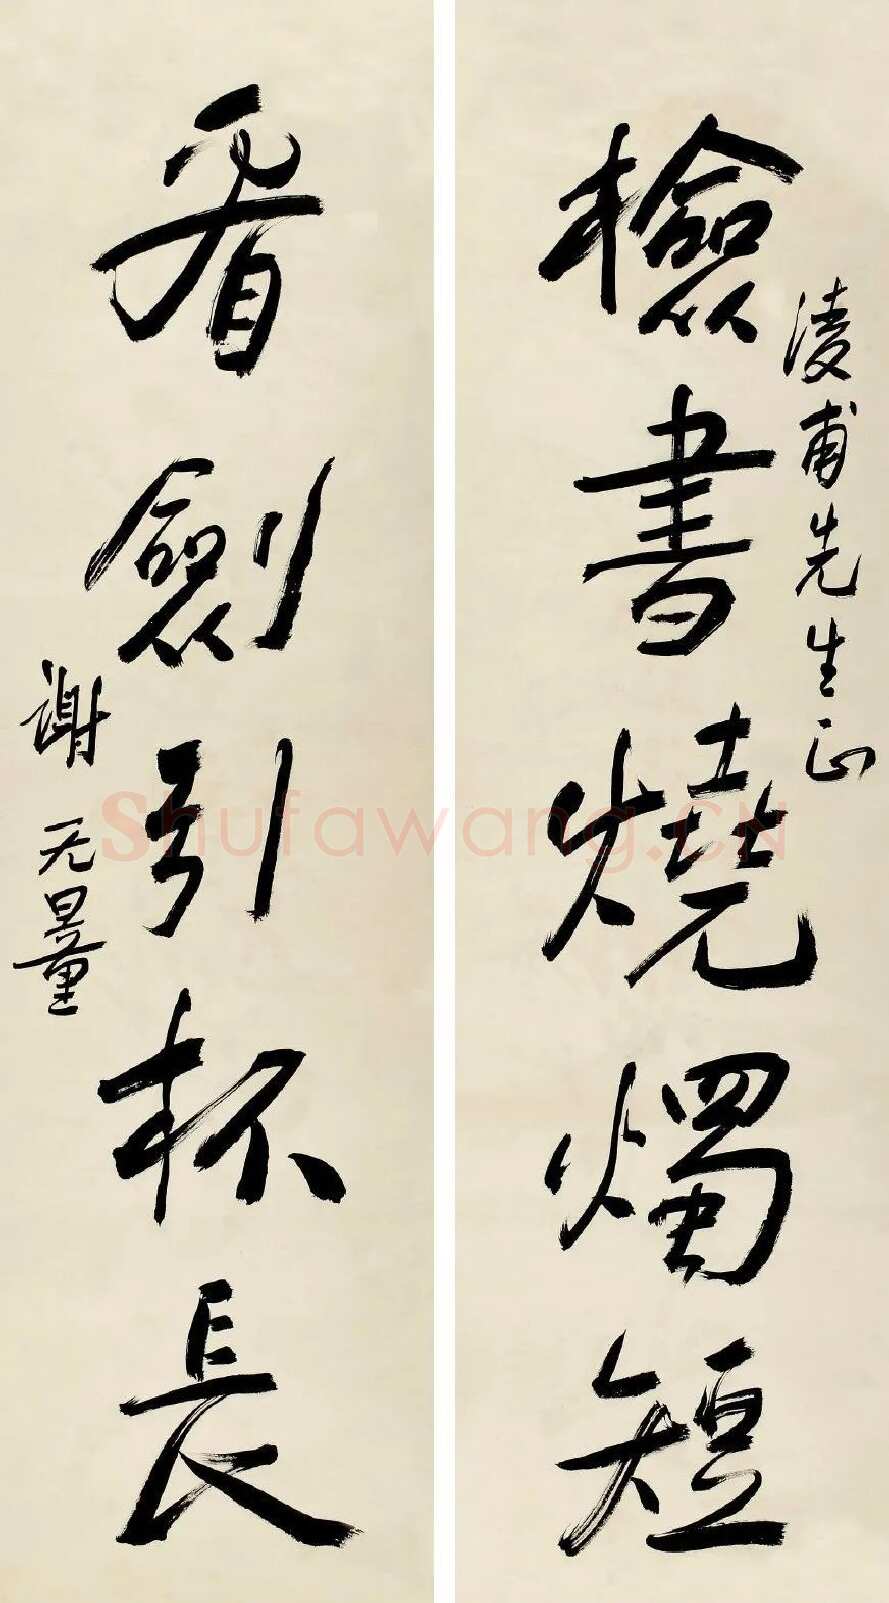 檢書燒燭短
淩甫先生正
看劍引杯長
謝无量
Shufawang.CN